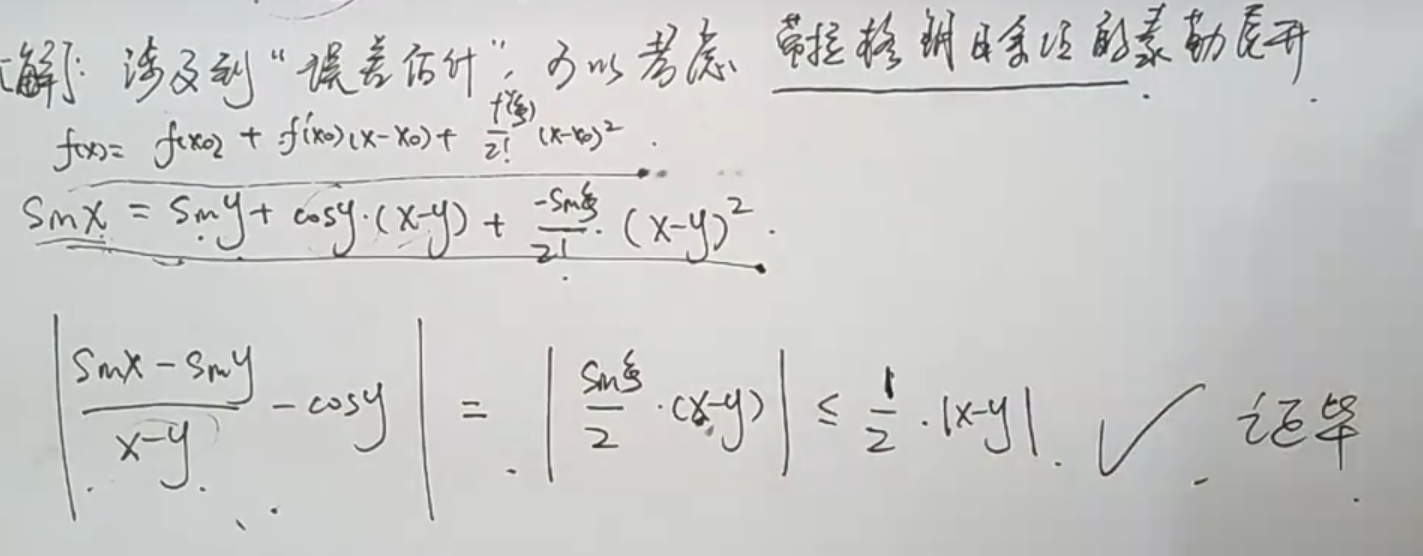 [解]: 涉及到“误差估计”, 可以考虑 带拉格朗日余项的泰勒展开.
f(x) = f(x₀) + f'(x₀)(x-x₀) + f''(ξ)/2! (x-x₀)².
sinx = siny + cosy·(x-y) + -sinξ/2! · (x-y)².
|(sinx - siny)/(x-y) - cosy| = |sinξ/2 · (x-y)| ≤ 1/2 · |x-y|. ✓ 证毕.